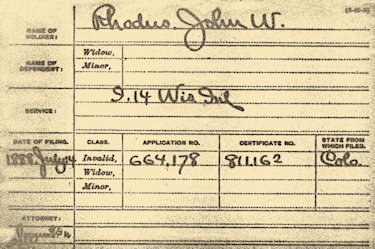 Rhodus, John W.
NAME OF SOLDIER:
NAME OF DEPENDENT:
Widow,
Minor,
SERVICE:
I. 14 Wis Inf
DATE OF FILING. CLASS. APPLICATION NO. CERTIFICATE NO. STATE FROM WHICH FILED.
1888 July Invalid, 664,178 811,162 Colo
Widow,
Minor,
ATTORNEY:
REMARKS: